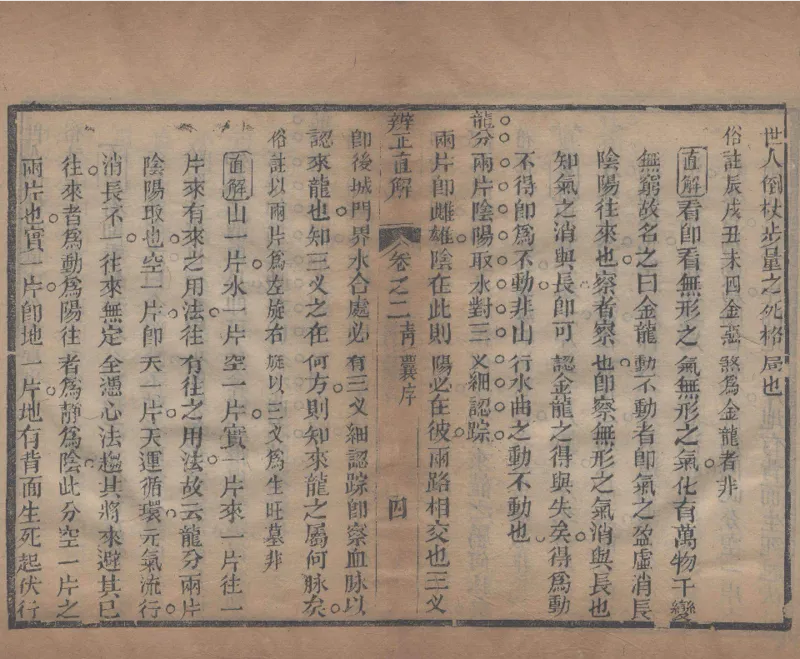 世人倒杖步量之死格局也
俗註辰戌丑未四金惡煞爲金龍者非
直解看卽看無形之氣無形之氣化有萬物千變
無窮故名之曰金龍動不動者卽氣之盈虛消長
陰陽往來也察者察也卽察無形之氣消與長也
知氣之消與長卽可認金龍之得與失矣得爲動
不得卽爲不動非山行水曲之動不動也
龍分兩片陰陽取水對三义細認踪
兩片卽雌雄陰在此則陽必在彼兩路相交也三义
卽後城門界水合處必有三义細認踪卽察血脉以
認來龍也知三义之在何方則知來龍之屬何脉矣
俗註以兩片爲左旋右旋以三义爲生旺墓非
直解山一片水一片空一片實一片來一片往一
片來有來之用法往有往之用法故云龍分兩片
陰陽取也空一片卽天一片天運循環元氣流行
消長不一往來無定全憑心法趨其將來避其已
往來者爲動爲陽往者爲靜爲陰此分空一片之
兩片也實一片卽地一片地有背面生死起伏行
辨正直解
卷之二青囊序
四